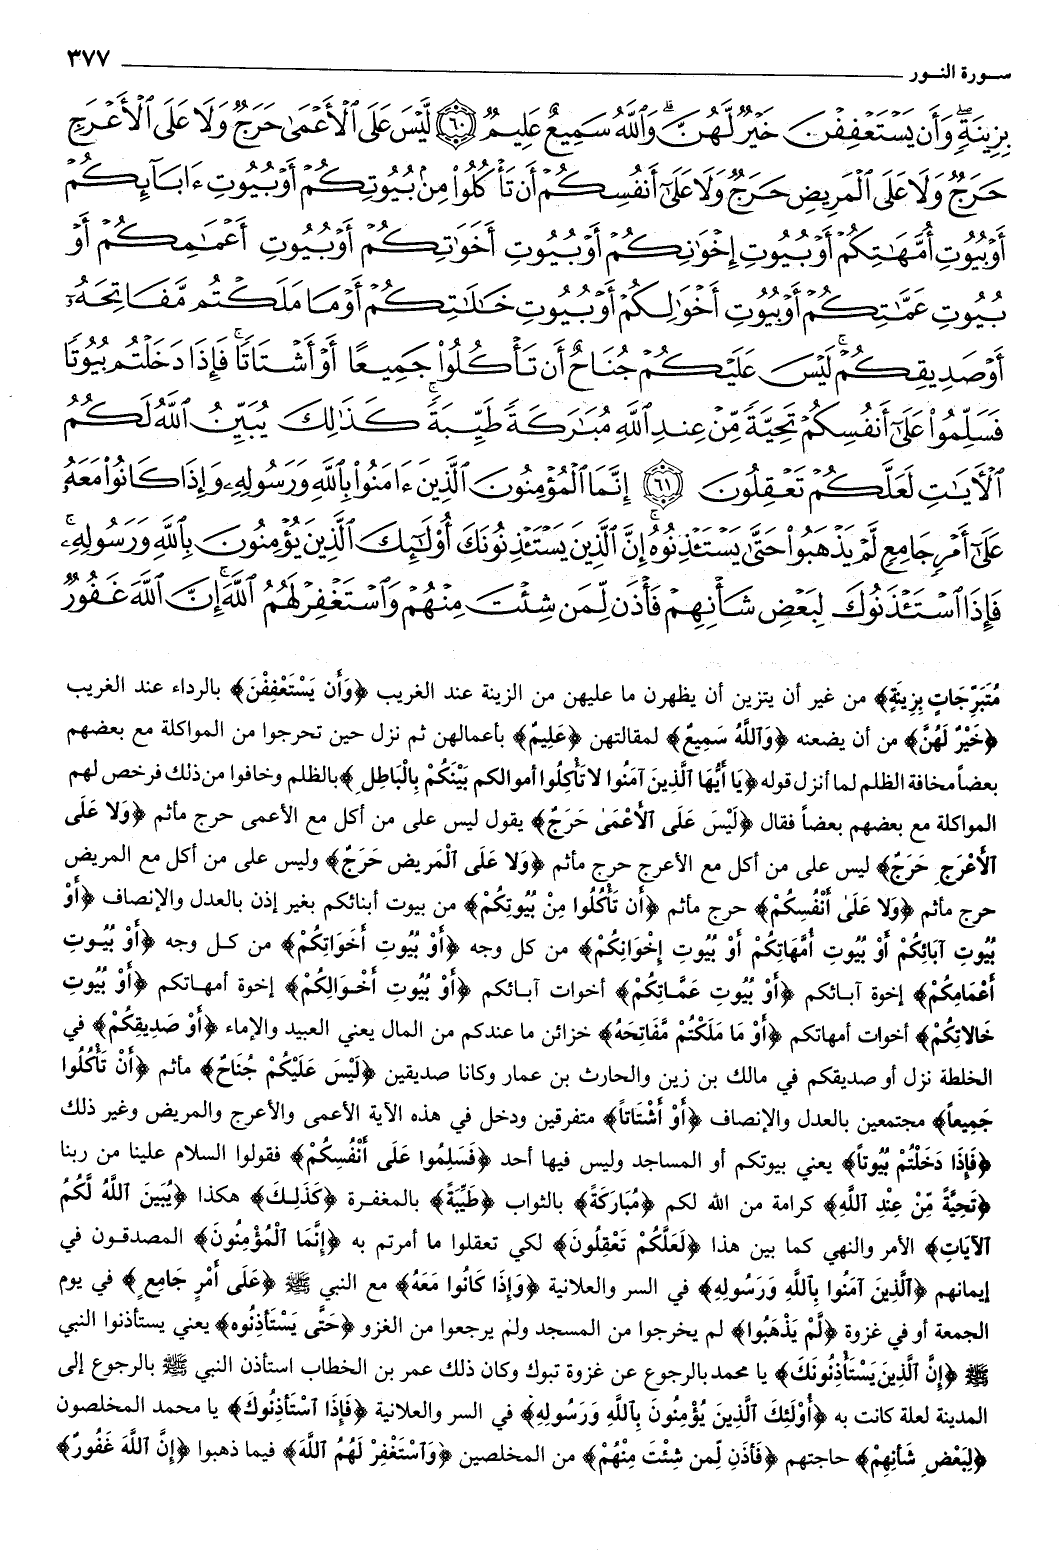 سورة النور ٣٧٧
بِزِينَةٍ ۖ وَأَن يَسْتَعْفِفْنَ خَيْرٌ لَّهُنَّ ۗ وَٱللَّهُ سَمِيعٌ عَلِيمٌ ٦٠ لَّيْسَ عَلَى ٱلْأَعْمَىٰ حَرَجٌ وَلَا عَلَى ٱلْأَعْرَجِ
حَرَجٌ وَلَا عَلَى ٱلْمَرِيضِ حَرَجٌ وَلَا عَلَىٰٓ أَنفُسِكُمْ أَن تَأْكُلُوا۟ مِنۢ بُيُوتِكُمْ أَوْ بُيُوتِ ءَابَآئِكُمْ
أَوْ بُيُوتِ أُمَّهَٰتِكُمْ أَوْ بُيُوتِ إِخْوَٰنِكُمْ أَوْ بُيُوتِ أَخَوَٰتِكُمْ أَوْ بُيُوتِ أَعْمَٰمِكُمْ أَوْ
بُيُوتِ عَمَّٰتِكُمْ أَوْ بُيُوتِ أَخْوَٰلِكُمْ أَوْ بُيُوتِ خَٰلَٰتِكُمْ أَوْ مَا مَلَكْتُم مَّفَاتِحَهُۥٓ
أَوْ صَدِيقِكُمْ ۚ لَيْسَ عَلَيْكُمْ جُنَاحٌ أَن تَأْكُلُوا۟ جَمِيعًا أَوْ أَشْتَاتًا ۚ فَإِذَا دَخَلْتُم بُيُوتًا
فَسَلِّمُوا۟ عَلَىٰٓ أَنفُسِكُمْ تَحِيَّةً مِّنْ عِندِ ٱللَّهِ مُبَٰرَكَةً طَيِّبَةً ۚ كَذَٰلِكَ يُبَيِّنُ ٱللَّهُ لَكُمُ
ٱلْأَيَٰتِ لَعَلَّكُمْ تَعْقِلُونَ ٦١ إِنَّمَا ٱلْمُؤْمِنُونَ ٱلَّذِينَ ءَامَنُوا۟ بِٱللَّهِ وَرَسُولِهِۦ وَإِذَا كَانُوا۟ مَعَهُۥ
عَلَىٰٓ أَمْرٍ جَامِعٍ لَّمْ يَذْهَبُوا۟ حَتَّىٰ يَسْتَـْٔذِنُوهُ ۚ إِنَّ ٱلَّذِينَ يَسْتَـْٔذِنُونَكَ أُو۟لَٰٓئِكَ ٱلَّذِينَ يُؤْمِنُونَ بِٱللَّهِ وَرَسُولِهِۦ ۚ
فَإِذَا ٱسْتَـْٔذَنُوكَ لِبَعْضِ شَأْنِهِمْ فَأْذَن لِّمَن شِئْتَ مِنْهُمْ وَٱسْتَغْفِرْ لَهُمُ ٱللَّهَ ۚ إِنَّ ٱللَّهَ غَفُورٌ
مُتَبَرِّجَاتٍ بِزِينَةٍ﴾ من غير أن يتزين أن يظهرن ما عليهن من الزينة عند الغريب ﴿وَأَن يَسْتَعْفِفْنَ﴾ بالرداء عند الغريب
﴿خَيْرٌ لَهُنَّ﴾ من أن يضعنه ﴿وَٱللَّهُ سَمِيعٌ﴾ لمقالتهن ﴿عَلِيمٌ﴾ بأعمالهن ثم نزل حين تحرجوا من المواكلة مع بعضهم
بعضاً مخافة الظلم لما أنزل قوله ﴿يَا أَيُّهَا الَّذِينَ آمَنُوا لا تَأْكِلُوا أموالكم بَيْنَكُمْ بِالْبَاطِلِ﴾ بالظلم وخافوا من ذلك فرخص لهم
المواكلة مع بعضهم بعضاً فقال ﴿لَيْسَ عَلَى ٱلْأَعْمَىٰ حَرَجٌ﴾ يقول ليس على من أكل مع الأعمى حرج مأثم ﴿وَلا عَلَى
ٱلْأَعْرَجِ حَرَجٌ﴾ ليس على من أكل مع الأعرج حرج مأثم ﴿وَلا عَلَى ٱلْمَرِيضِ حَرَجٌ﴾ وليس على من أكل مع المريض
حرج مأثم ﴿وَلا عَلَىٰ أَنْفُسِكُمْ﴾ حرج مأثم ﴿أَن تَأْكُلُوا مِنْ بُيُوتِكُمْ﴾ من بيوت أبنائكم بغير إذن بالعدل والإنصاف ﴿أَوْ
بُيُوتِ آبَائِكُمْ أَوْ بُيُوتِ أُمَّهَاتِكُمْ أَوْ بُيُوتِ إِخْوَانِكُمْ﴾ من كل وجه ﴿أَوْ بُيُوتِ أَخَوَاتِكُمْ﴾ من كل وجه ﴿أَوْ بُيُوتِ
أَعْمَامِكُمْ﴾ إخوة آبائكم ﴿أَوْ بُيُوتِ عَمَّاتِكُمْ﴾ أخوات آبائكم ﴿أَوْ بُيُوتِ أَخْوَالِكُمْ﴾ إخوة أمهاتكم ﴿أَوْ بُيُوتِ
خَالاتِكُمْ﴾ أخوات أمهاتكم ﴿أَوْ مَا مَلَكْتُمْ مَّفَاتِحَهُ﴾ خزائن ما عندكم من المال يعني العبيد والإماء ﴿أَوْ صَدِيقِكُمْ﴾ في
الخلطة نزل أو صديقكم في مالك بن زين والحارث بن عمار وكانا صديقين ﴿لَيْسَ عَلَيْكُمْ جُنَاحٌ﴾ مأثم ﴿أَنْ تَأْكُلُوا
جَمِيعاً﴾ مجتمعين بالعدل والإنصاف ﴿أَوْ أَشْتَاتاً﴾ متفرقين ودخل في هذه الآية الأعمى والأعرج والمريض وغير ذلك
﴿فَإِذَا دَخَلْتُمْ بُيُوتاً﴾ يعني بيوتكم أو المساجد وليس فيها أحد ﴿فَسَلِمُوا عَلَى أَنْفُسِكُمْ﴾ فقولوا السلام علينا من ربنا
﴿تَحِيَّةً مِّنْ عِنْدِ ٱللَّهِ﴾ كرامة من الله لكم ﴿مُبَارَكَةً﴾ بالثواب ﴿طَيِّبَةً﴾ بالمغفرة ﴿كَذَلِكَ﴾ هكذا ﴿يُبَينَ اللَّهُ لَكُمُ
ٱلآيَاتِ﴾ الأمر والنهي كما بين هذا ﴿لَعَلَّكُمْ تَعْقِلُونَ﴾ لكي تعقلوا ما أمرتم به ﴿إِنَّمَا ٱلْمُؤْمِنُونَ﴾ المصدقون في
إيمانهم ﴿ٱلَّذِينَ آمَنُوا بِٱللَّهِ وَرَسُولِهِ﴾ في السر والعلانية ﴿وَإِذَا كَانُوا مَعَهُ﴾ مع النبي ﷺ ﴿عَلَى أَمْرٍ جَامِعٍ﴾ في يوم
الجمعة أو في غزوة ﴿لَّمْ يَذْهَبُوا﴾ لم يخرجوا من المسجد ولم يرجعوا من الغزو ﴿حَتَّى يَسْتَأذِنُوه﴾ يعني يستأذنوا النبي
ﷺ ﴿إِنَّ الَّذِينَ يَسْتَأْذِنُونَكَ﴾ يا محمد بالرجوع عن غزوة تبوك وكان ذلك عمر بن الخطاب استأذن النبي ﷺ بالرجوع إلى
المدينة لعلة كانت به ﴿أُوْلَئِكَ ٱلَّذِينَ يُؤْمِنُونَ بِٱللَّهِ وَرَسُولِهِ﴾ في السر والعلانية ﴿فَإِذَا ٱسْتَأْذَنُوكَ﴾ يا محمد المخلصون
﴿لِبَعْضِ شَأْنِهِمْ﴾ حاجتهم ﴿فَأْذَنِ لِّمن شِئْتَ مِنْهُمْ﴾ من المخلصين ﴿وَٱسْتَغْفِرْ لَهُمُ اللَّهَ﴾ فيما ذهبوا ﴿إِنَّ اللَّهَ غَفُورٌ﴾